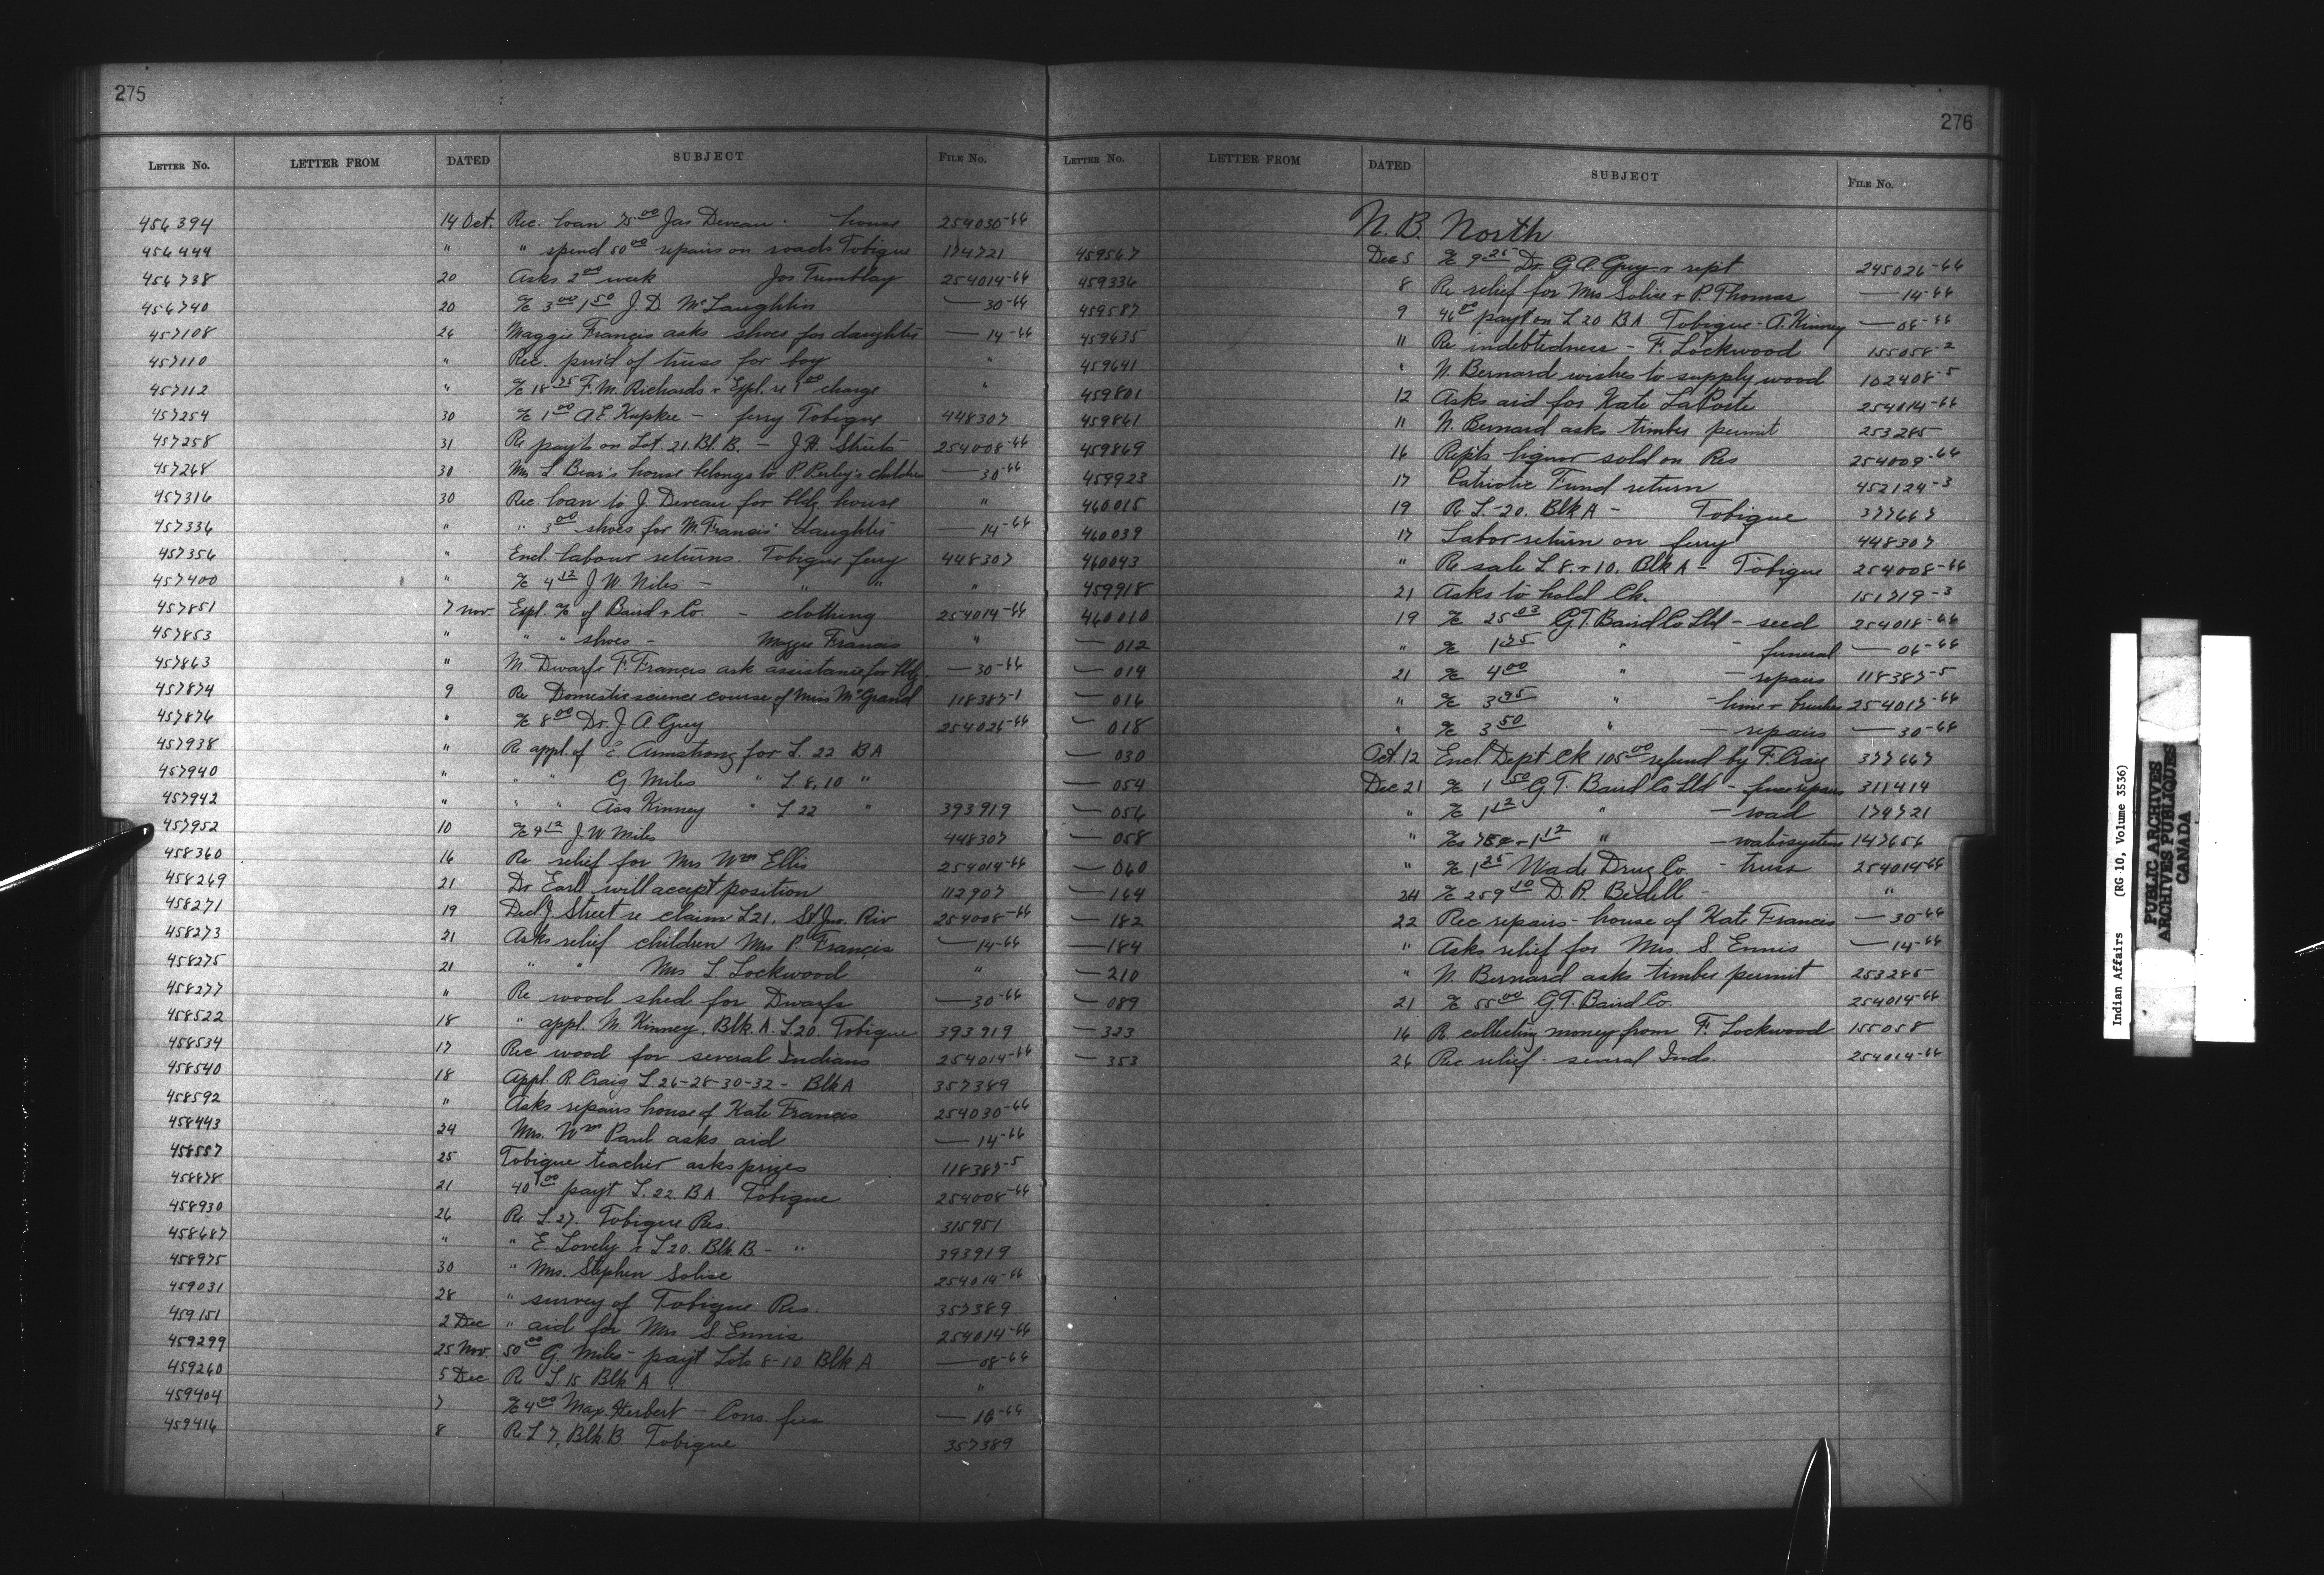 275
LETTER NO. LETTER FROM DATED SUBJECT FILE NO.
456394 14 Oct. Rec. loan 75 00 Jas Deveau house 254030-66
456444 " " spend 50 00 repairs on roads Tobique 174721
456738 20 Asks 2 00 week Jos Tumblay 254014-66
456740 20 a/c 3 00 1 50 J. D. McLaughlin — 30-66
457108 26 Maggie Francis asks shoes for daughter — 14-66
457110 " Rec. pur'd of truss for boy "
457112 " a/c 18 75 F. M. Richards + Expl. re 1 00 charge "
457254 30 a/c 1 00 A. E. Kupkee — ferry Tobique 448307
457258 31 Re payts on Lot. 21. Bl. B. — J. H. Streets 254008-66
457268 30 Mrs L. Bear's house belongs to P. Perley's children — 30-66
457316 30 Rec. loan to J. Deveau for bldg. house "
457336 " " 3 00 shoes for M. Francis' daughter — 14-66
457356 " Encl. labour returns. Tobique ferry 448307
457400 " a/c 4 12 J. W. Niles — " " "
457851 7 Nov. Expl. a/c of Baird + Co. — clothing 254014-66
457853 " " " shoes — Maggie Francis "
457863 " M. Dwarf + F. Francis ask assistance for bldg. — 30-66
457874 9 Re Domestic science course of Miss McGrand 118387-1
457876 " a/c 8 00 Dr. J. A. Guy 254026-66
457938 " Re appl. of E. Armstrong for L. 22 B A
457940 " " " G Miles " L 8, 10 "
457942 " " " Asa Kinney " L 22 " 393919
457952 10 a/c 9 12 J. W Miles 448307
458360 16 Re relief for Mrs Wm Ellis 254014-66
458269 21 Dr Earll will accept position 112907
458271 19 Decl. J Street re claim L 21. St Jno. Riv 254008-66
458273 21 Asks relief children Mrs P. Francis — 14-66
458275 21 " " Mrs L Lockwood "
458277 " Re wood shed for Dwarfs — 30-66
458522 18 " appl. M. Kinney, Blk. A. L 20. Tobique 393919
458534 17 Rec wood for several Indians 254014-66
458540 18 Appl. R. Craig L 26-28-30-32 - Blk A 357389
458592 " Asks repairs house of Kate Francis 254030-66
458443 24 Mrs. Wm Paul asks aid — 14-66
458557 25 Tobique teacher asks prizes 118387-5
458878 21 40 00 payt L. 22. B A Tobique 254008-66
458930 26 Re L. 27. Tobique Res. 315951
458687 " " E. Lovely + L 20. Blk. B. — " 393919
458975 30 " Mrs. Stephen Solise 254014-66
459031 28 " survey of Tobique Res. 357389
459151 2 Dec " aid for Mrs S. Ennis 254014-66
459299 25 Nov. 50 00 G. Miles — payt Lots 8-10 Blk A — 08-66
459260 5 Dec Re L 15 Blk A "
459404 7 a/c 4 00 Max. Herbert — Cons. fees — 16-66
459416 8 Re L 7, Blk. B. Tobique 357389
276
LETTER NO. LETTER FROM DATED SUBJECT FILE NO.
N. B. North
459567 Dec 5 a/c 9 25 Dr G A. Guy + rept 245026-66
459336 8 Re relief for Mrs Solise + P. Thomas — 14-66
459587 9 46 00 payt on L 20 B A Tobique - A. Kinney — 08-66
459635 11 Re indebtedness — F. Lockwood 155058-2
459641 " N. Bernard wishes to supply wood 102408-5
459801 12 Asks aid for Kate LaPorte 254014-66
459861 11 N. Bernard asks timber permit 253285
459869 16 Repts liquor sold on Res 254009-66
459923 17 Patriotic Fund return 452124-3
460015 19 Re L-20. Blk A — Tobique 377667
460039 17 Labor return on ferry 448307
460043 " Re sale L 8. + 10. Blk A — Tobique 254008-66
459918 21 Asks to hold Ck. 151719-3
460010 19 a/c 25 03 G. T. Baird Co Ltd — seed 254018-66
— 012 " a/c 1 75 " — funeral — 06-66
— 014 21 a/c 4 00 " — repairs 118387-5
— 016 " a/c 3 95 " — lime + brushes 254017-66
— 018 " a/c 3 50 " — repairs — 30-66
— 030 Oct. 12 Encl Dept Ck 105 00 refund by F. Craig 377667
— 054 Dec 21 a/c 1 50 G T. Baird Co Ltd — fence repairs 311414
— 056 " a/c 1 12 " — road 174721
— 058 " a/cs 75c + 1 12 " — water system 147656
— 060 " a/c 1 25 Wade Drug Co — truss 254014-66
— 164 24 a/c 259 10 D. R. Bedell — "
— 182 22 Rec repairs - house of Kate Francis — 30-66
— 184 " Asks relief for Mrs. S. Ennis — 14-66
— 210 " N. Bernard asks timber permit 253285
— 089 21 a/c 55 00 G. T. Baird Co. 254014-66
— 323 16 Re collecting money from F. Lockwood 155058
— 353 26 Rec relief - several Inds. 254014-66
Indian Affairs (RG 10, Volume 3536)
PUBLIC ARCHIVES
ARCHIVES PUBLIQUES
CANADA